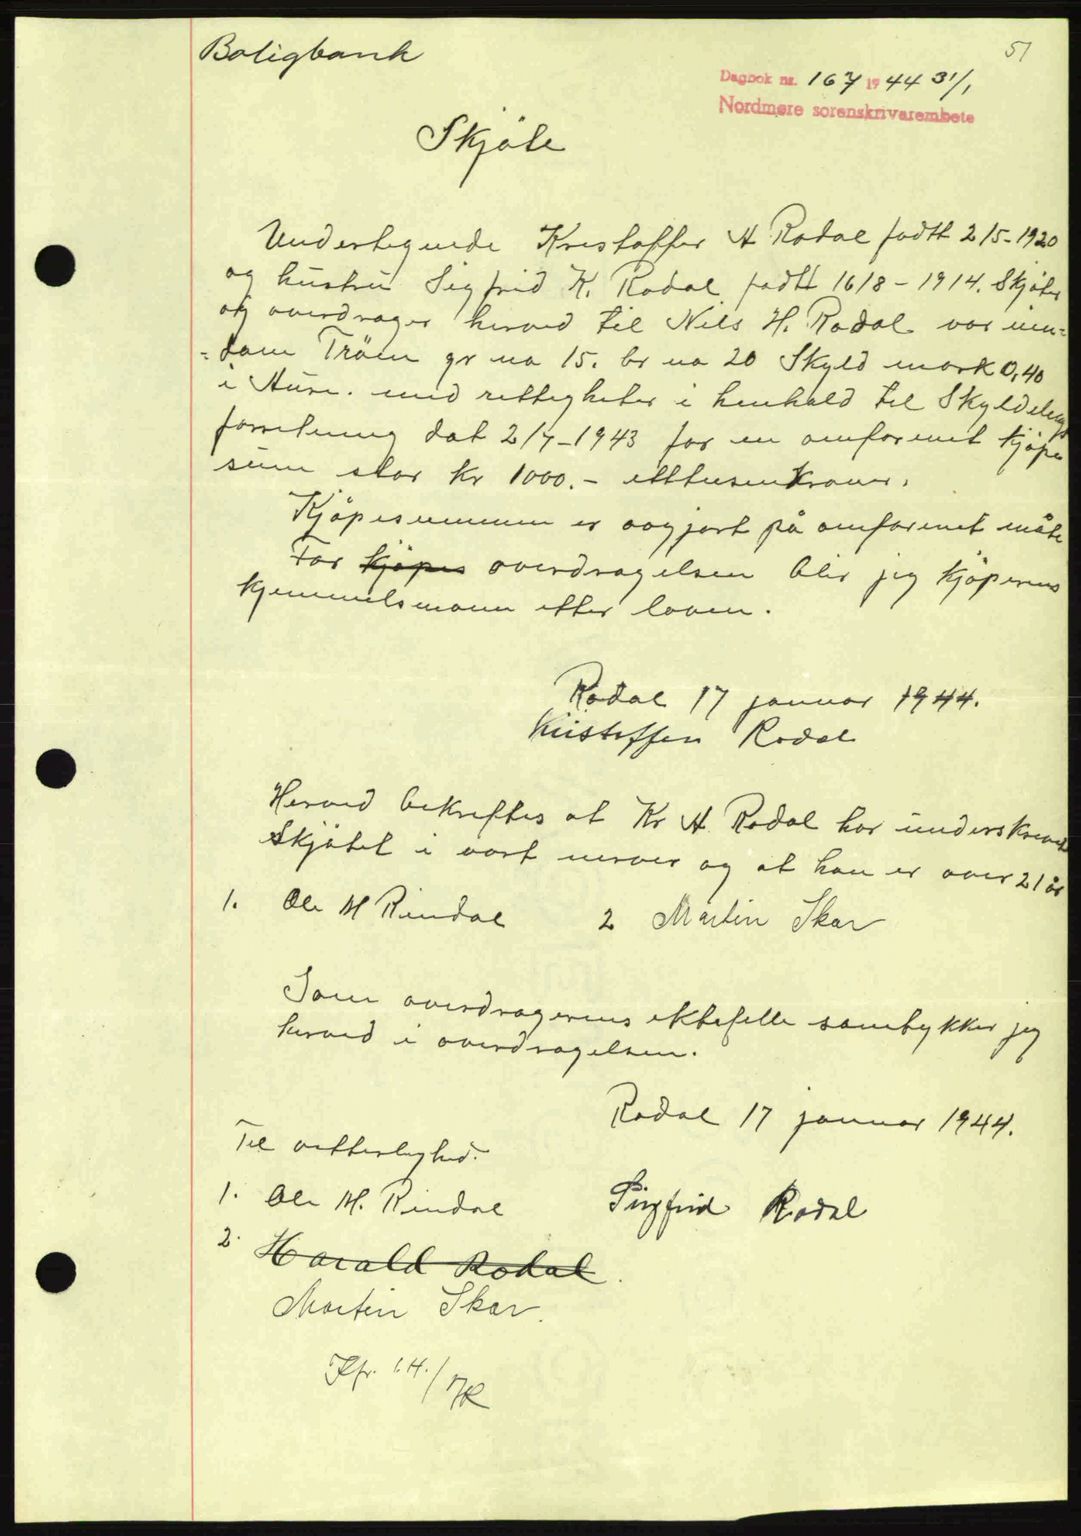 Boligbank
51
Dagbok nr. 167 1944 31/1
Nordmøre sorenskrivarembete
Skjöte
Undertegnede Kristoffer A Rodal födt 2/5-1920
og hustru Sigfrid K. Rodal födt 16/8-1914. Skjöter
og overdrager herved til Nils H. Rodal vor eien-
=dom Tröen gr no 15. br no 20 Skyld mark 0,40
i Aure. med rettigheter i henhold til Skyldelings
forretning dat 2/7-1943 for en omforenet kjöpe
sum stor kr 1000.- etttusenkroner.
Kjöpesummen er avgjort på omforenet måte
For kjöpes overdragelsen blir jeg kjöperens
hjemmelsmann etter loven.
Rodal 17 januar 1944.
Kristoffer Rodal
Herved bekreftes at Kr A. Rodal har underskrevet
Skjötet i vort nervær og at han er over 21 år
1. Ole M Rindal 2 Martin Skar
Som overdragerens ektefelle samtykker jeg
herved i overdragelsen.
Rodal 17 januar 1944.
Til vitterlighed.
1. Ole M. Rindal Sigfrid Rodal
2. Harald Rodal
Martin Skar.